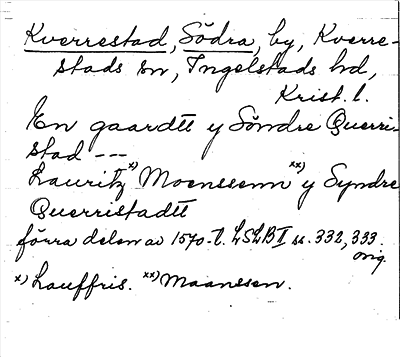 Kverrestad, Södra, by, Kverre-
stads sn, Ingelstads hd,
Krist. l.
En gaardtt y Söndre Querri-
stad ---
Lauritz x) Moenssenn xx) y Syndre
Querristadtt
förra delen av 1570-t. LSLB I ss. 332, 333.
orig.
x) Lauffris. xx) Maanssen.